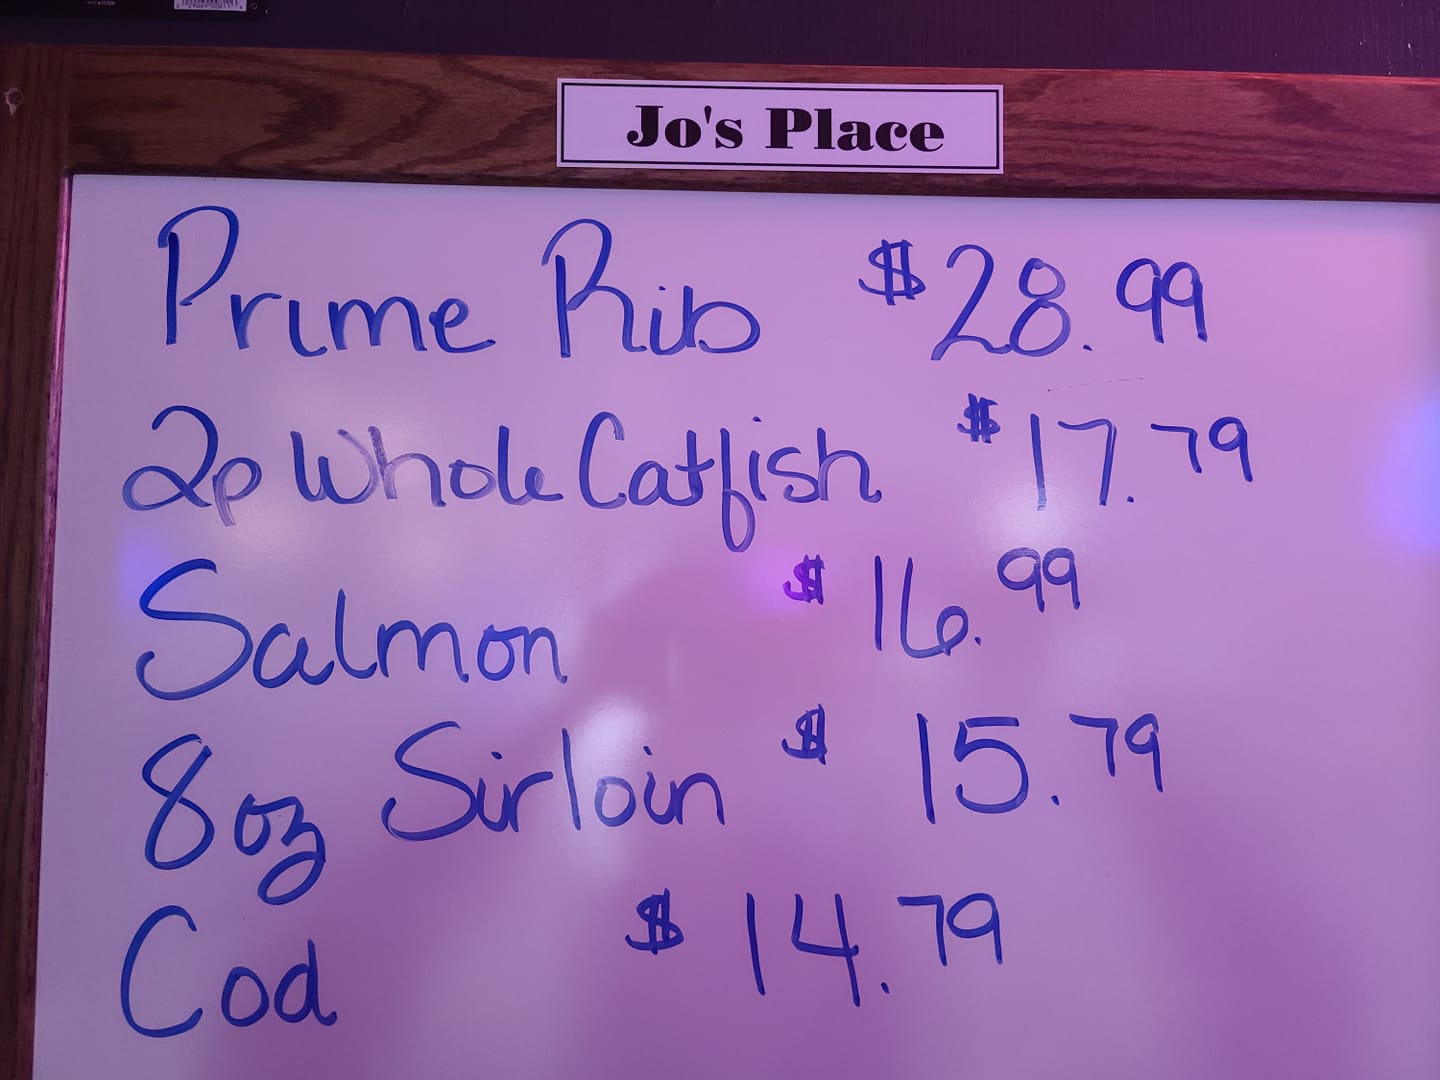 Jo's Place
Prime Rib $28.99
2p Whole Catfish $17.79
Salmon $16.99
8oz Sirloin $15.79
Cod $14.79